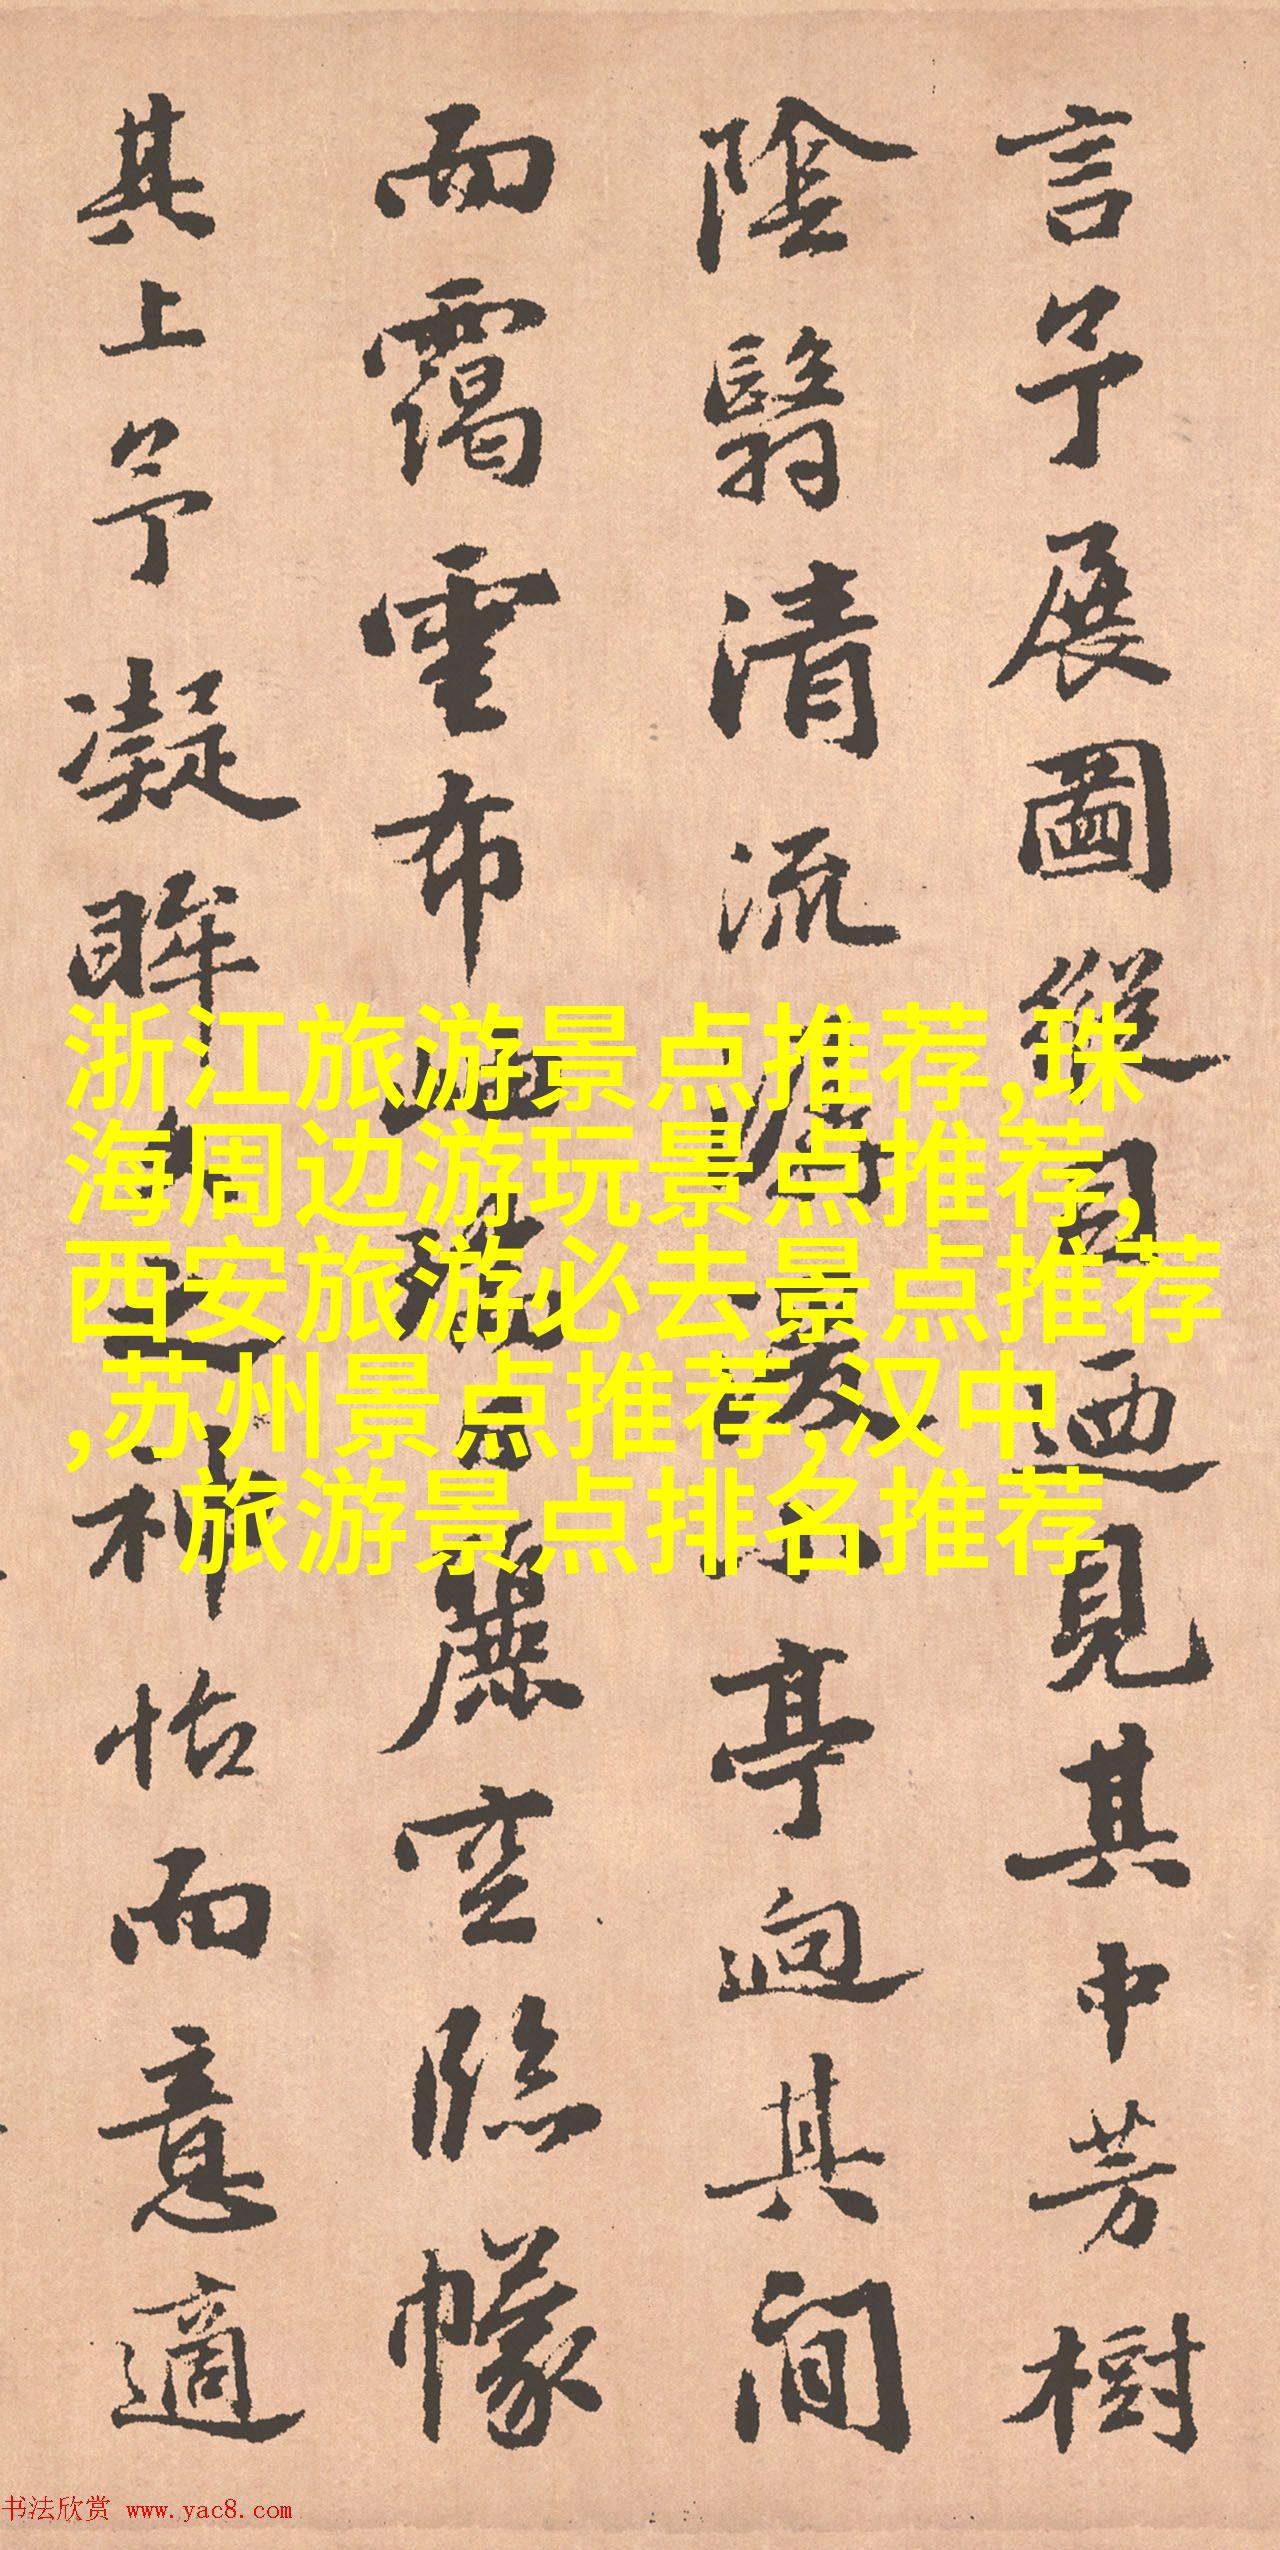 言予展圖縱目迺見其中芳樹
陰翳清流湲小亭逈其間
而靄雲布日麗空臨幪
其上予凝眸之神怡而意適
浙江旅游景点推荐,珠
海周边游玩景点推荐,
西安旅游必去景点推荐
,苏州景点推荐,汉中
旅游景点排名推荐
书法欣赏 www.yac8.com